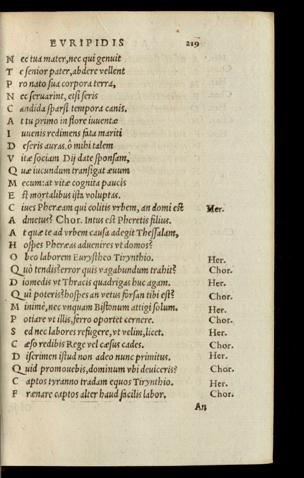 EVRIPIDIS 219
N ec tua mater, nec qui genuit
T e senior pater, abdere vellent
P ro nato sua corpora terra,
N ec seruarint, etsi seris
C andida sparsi tempora canis.
A t tu primo in flore iuuentæ
I uuenis redimens fata mariti
D eseris auras. ô mihi talem
V itæ sociam Dij date sponsam,
Q uæ iucundum transigat æuum
M ecum: at vitæ cognita paucis
E st mortalibus ista voluptas.
C iues Pheræam qui colitis vrbem, an domi est Her.
A dmetus? Chor. Intus est Pheretis filius.
A t quæ te ad vrbem causa adegit Thessalam,
H ospes Pheræas aduenires vt domos?
O beo laborem Eurystheo Tirynthio. Her.
Q uò tendis? error quis vagabundum trahit? Chor.
D iomedis vt Thracis quadrigas huc agam. Her.
Q uî poteris? hospes an vetus forsan tibi est? Chor.
M inimè, nec vnquam Bistonum attigi solum. Her.
P otiare vt illis, ferro oportet cernere. Chor.
S ed nec labores refugere, vt velim, licet. Her.
C æso redibis Rege vel cæsus cades. Chor.
D iscrimen istud non adeo nunc primitus. Her.
Q uid promouebis, dominum vbi deuiceris? Chor.
C aptos tyranno tradam equos Tirynthio. Her.
F rænare captos alter haud facilis labor. Chor.
An